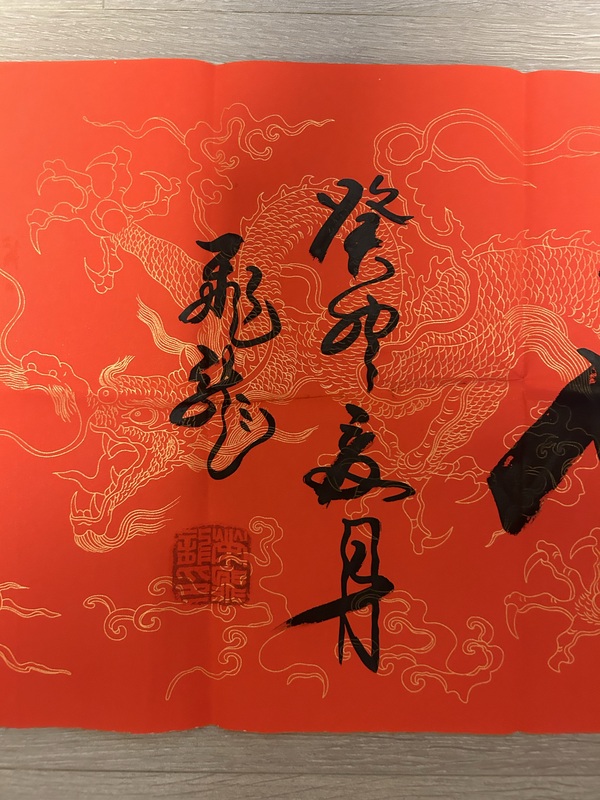 癸卯夏月
飛龍